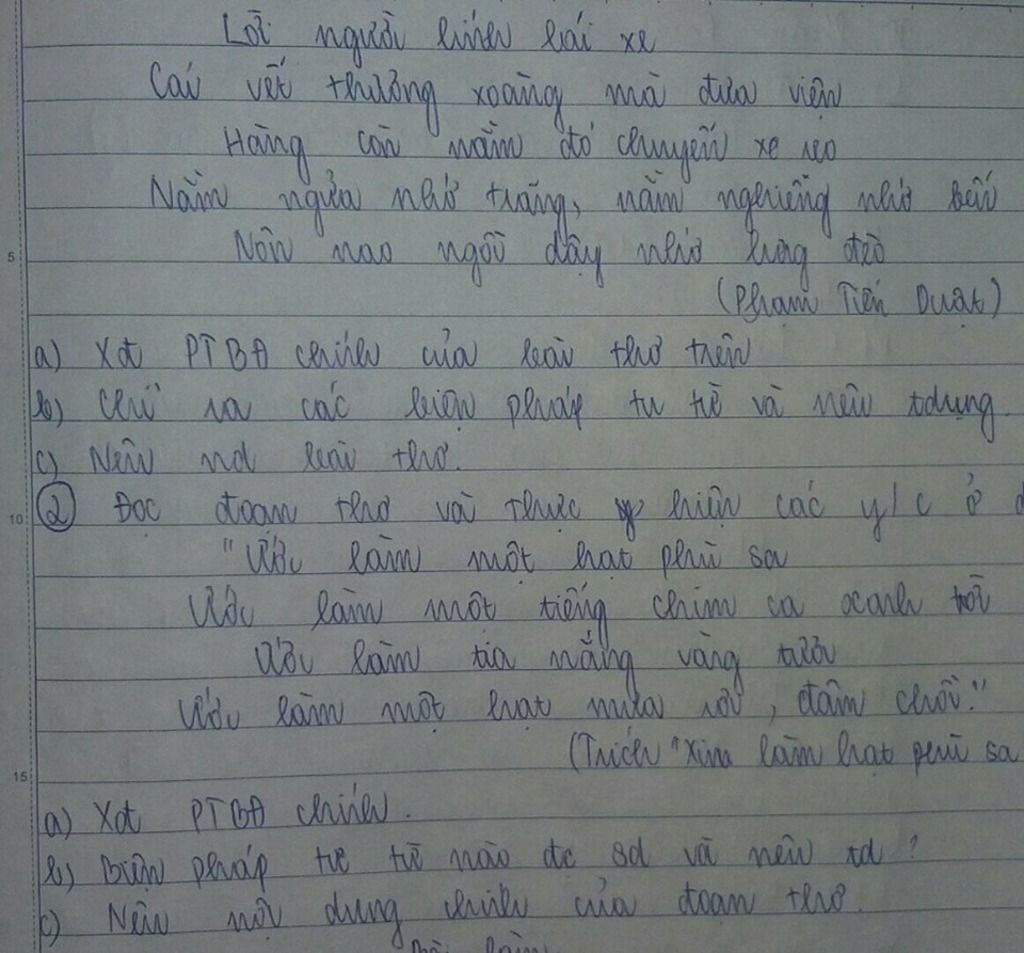 Lời người lính lái xe
Cái vết thương xoàng mà đưa viện
Hàng còn nằm đó chuyến xe reo
Nằm ngửa nhớ trăng, nằm nghiêng nhớ bến
Nôn nao ngồi dậy nhớ lưng đèo
(Phạm Tiến Duật)
a) Xđ PTBĐ chính của bài thơ trên
b) Chỉ ra các biện pháp tu từ và nêu tdụng.
c) Nêu nd bài thơ.
② Đọc đoạn thơ và thực hiện các y/c ở d
"Ước làm một hạt phù sa
Ước làm một tiếng chim ca xanh trời
Ước làm tia nắng vàng tươi
Ước làm một hạt mưa rơi, đâm chồi."
(Trích "Xin làm hạt phù sa
a) Xđ PTBĐ chính.
b) Biện pháp tu từ nào đc sd và nêu td?
c) Nêu nội dung chính của đoạn thơ.